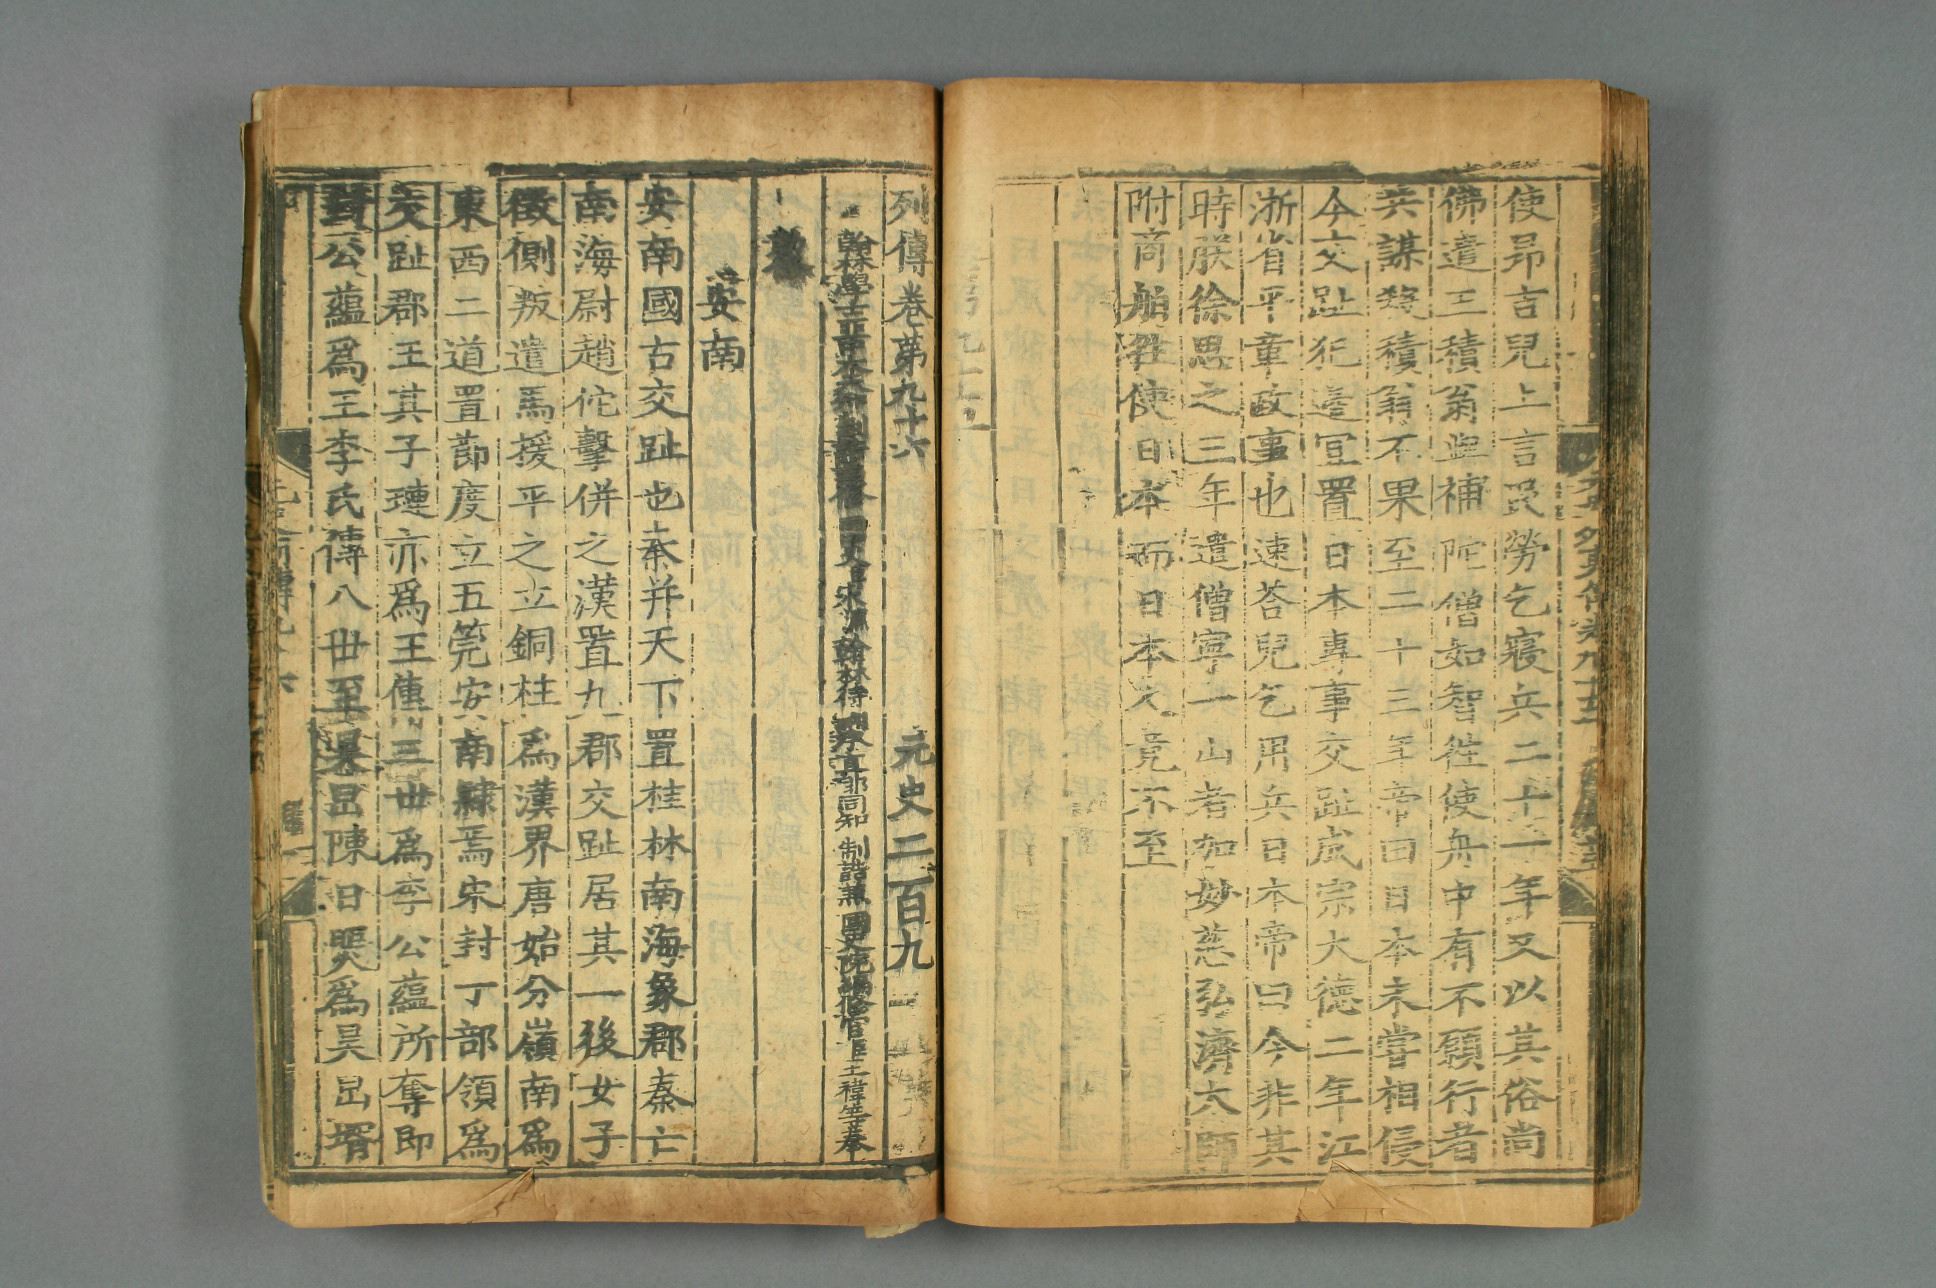 使昻吉兒上言民勞乞寢兵二十一年又以其俗尚
佛遣王積翁與補陀僧如智徃使舟中有不願行者
共謀殺積翁不果至二十三年帝曰日本未嘗相侵
今交趾犯邊宜置日本專事交趾成宗大德二年江
浙省平章政事也速荅兒乞用兵日本帝曰今非其
時朕徐思之三年遣僧寧一山者加妙慈弘濟大師
附商舶徃使日本而日本人竟不至
列傳卷第九十六 元史二百九
翰林學士 宋濂 翰林待制 同知制誥兼國史院編修官臣王禕等奉
敕
安南
安南國古交趾也秦并天下置桂林南海象郡秦亡
南海尉趙佗擊併之漢置九郡交趾居其一後女子
徵側叛遣馬援平之立銅柱爲漢界唐始分嶺南爲
東西二道置節度立五筦安南隸焉宋封丁部領爲
交趾郡王其子璉亦爲王傳三世爲李公蘊所奪即
封公蘊爲王李氏傳八世至昊旵陳日煚爲昊旵壻